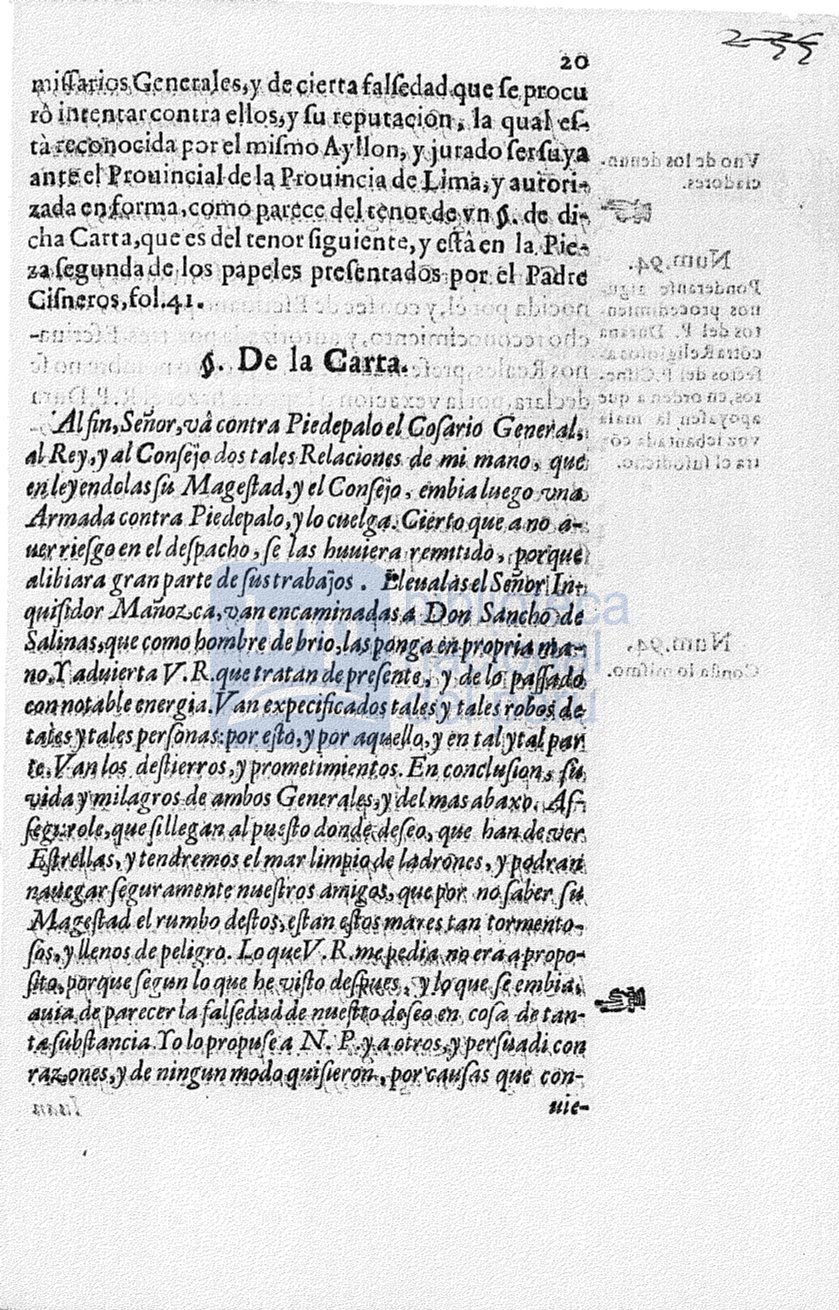 20
miſſarios Generales, y de cierta falſedad que ſe procu
rò intentar contra ellos, y ſu reputaciòn, la qual eſ-
tà reconocida por el miſmo Ayllon, y jurado ſer ſuya
ante el Prouincial de la Prouincia de Lima, y autori-
zada en forma, como parece del tenor de vn §. de di-
cha Carta, que es del tenor ſiguiente, y eſtà en la Pie-
za ſegunda de los papeles preſentados por el Padre
Ciſneros, fol. 41.
§. De la Carta.
Al fin, Señor, và contra Piedepalo el Coſario General,
al Rey, y al Conſejo dos tales Relaciones de mi mano, que
en leyendolas ſu Mageſtad, y el Conſejo, embia luego vna
Armada contra Piedepalo, y lo cuelga. Cierto que a no a-
uer rieſgo en el deſpacho, ſe las huuiera remitido, porque
alibiara gran parte de ſus trabajos. Lleualas el Señor In-
quiſidor Mañozca, van encaminadas a Don Sancho de
Salinas, que como hombre de brio, las ponga en propria ma-
no. Y aduierta V. R. que tratan de preſente, y de lo paſſado
con notable energia. Van expecificados tales y tales robos de
tales y tales perſonas: por eſto, y por aquello, y en tal y tal par
te. Van los deſtierros, y prometimientos. En concluſion, ſu
vida y milagros de ambos Generales, y del mas abaxo. Aſ-
ſegurole, que ſi llegan al pueſto donde deſeo, que han de ver
Eſtrellas, y tendremos el mar limpio de ladrones, y podran
nauegar ſeguramente nueſtros amigos, que por no ſaber ſu
Mageſtad el rumbo deſtos, eſtan eſtos mares tan tormento-
ſos, y llenos de peligro. Lo que V. R. me pedia no era a propo-
ſito, porque ſegun lo que he viſto deſpues, y lo que ſe embia,
auia de parecer la falſedad de nueſtro deſeo en coſa de tan-
ta ſubſtancia. Yo lo propuſe a N. P. y a otros, y perſuadi con
razones, y de ningun modo quiſieron, por cauſas que con-
uie-
biblioteca
nacional
del perú